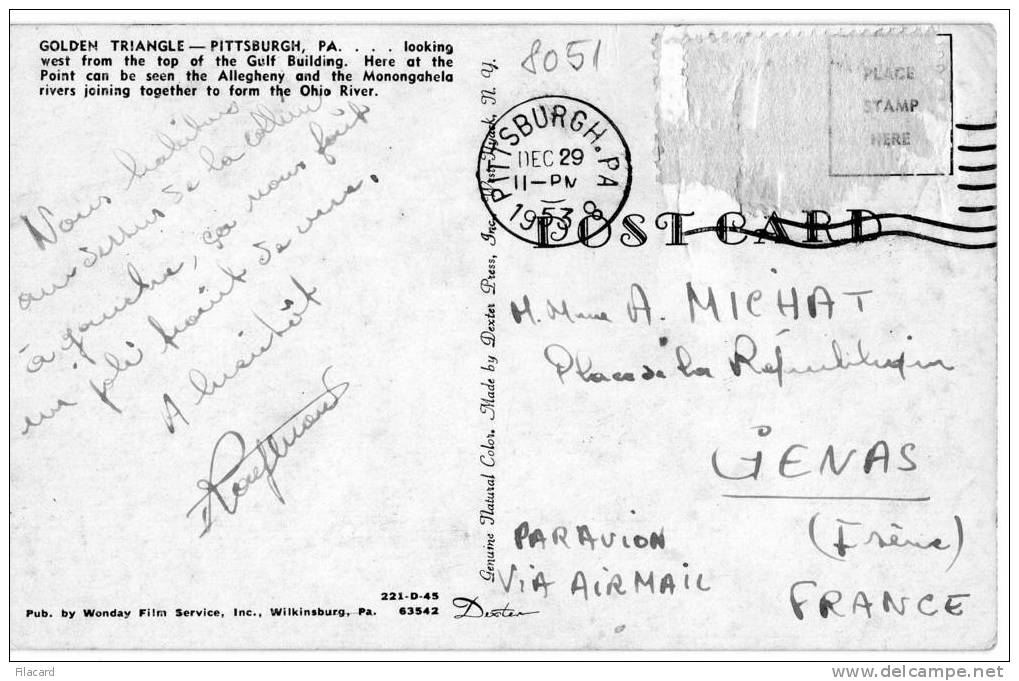 GOLDEN TRIANGLE — PITTSBURGH, PA. . . . looking
west from the top of the Gulf Building. Here at the
Point can be seen the Allegheny and the Monongahela
rivers joining together to form the Ohio River.
Nous habitons
au dessus de la colline
à gauche, ça nous fait
un joli point de vue.
A bientôt
221-D-45
Pub. by Wonday Film Service, Inc., Wilkinsburg, Pa. 63542
Genuine Natural Color. Made by Dexter Press, Inc., West Nyack, N. Y.
Dexter
8051
PITTSBURGH, PA
DEC 29
11-PM
1953
8
PLACE
STAMP
HERE
POST CARD
M. Mme A. MICHAT
Place de la
GENAS
(Isère)
FRANCE
PAR AVION
VIA AIR MAIL
Filacard
www.delcampe.net